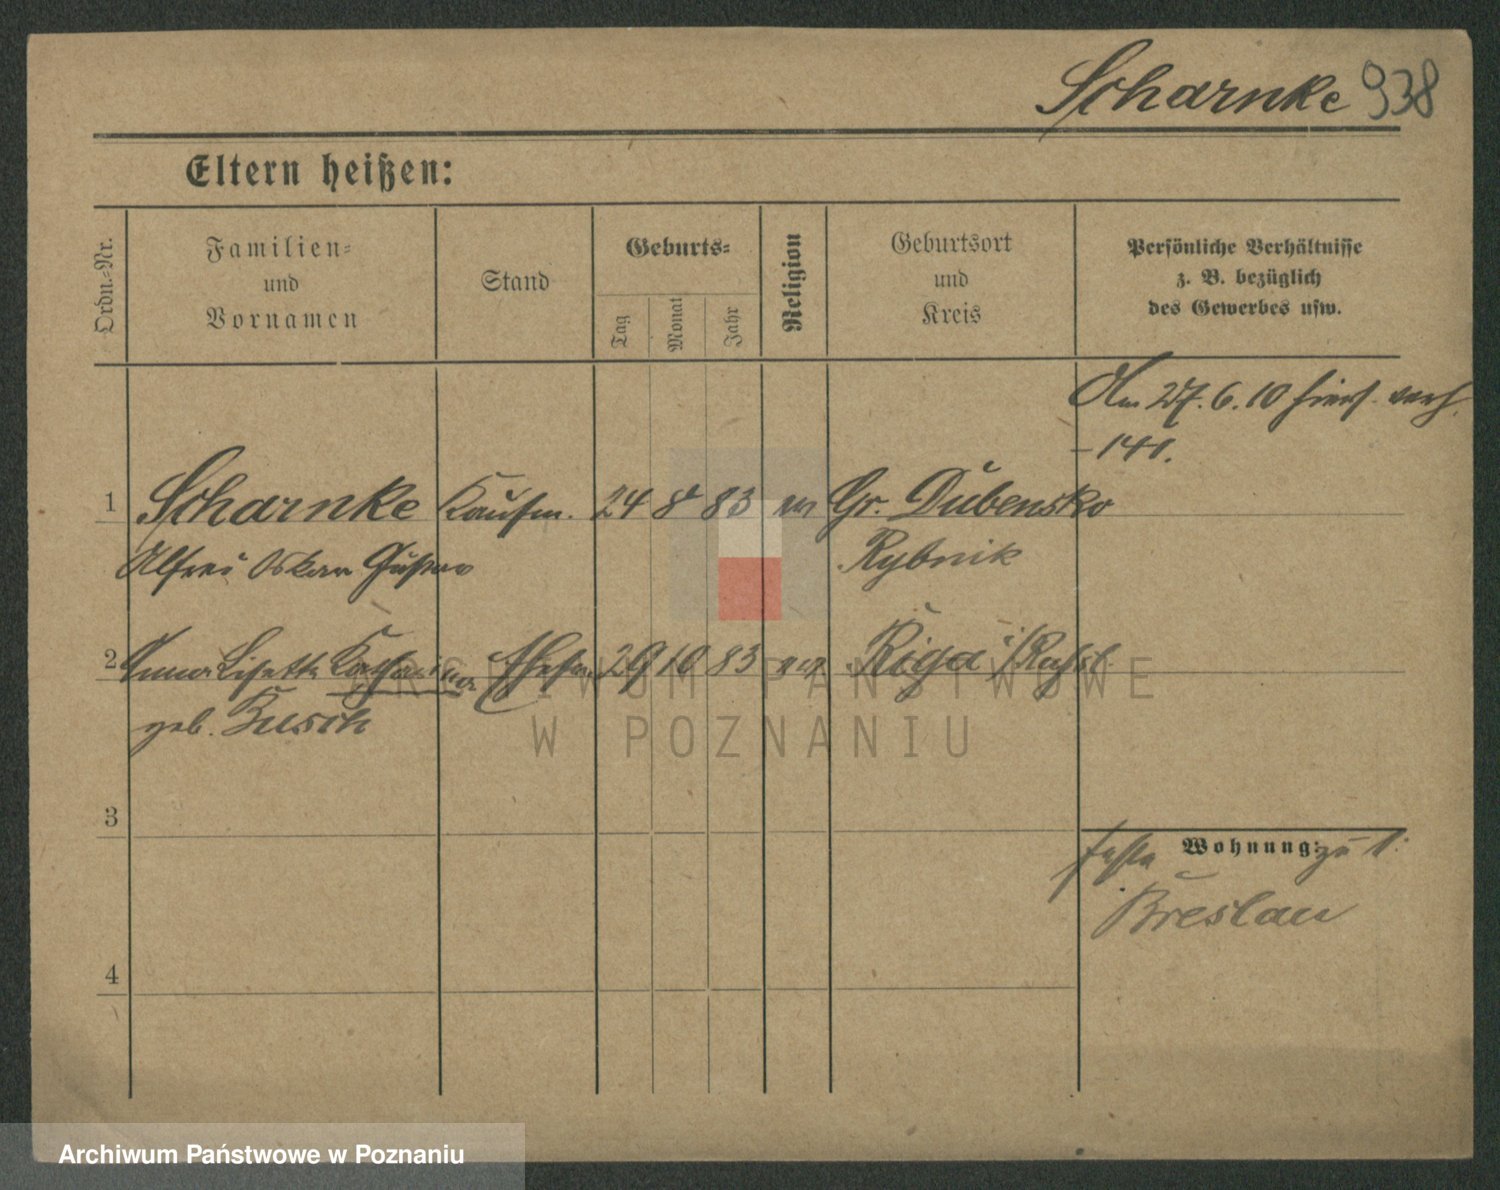 Scharnke 938
Eltern heißen:
Ordn.-Nr.
Familien-
und
Vornamen
Stand
Geburts-
Tag
Monat
Jahr
Religion
Geburtsort
und
Kreis
Persönliche Verhältnisse
z. B. bezüglich
des Gewerbes usw.
Am 27. 6. 10 hier verh.
1 Scharnke Kaufm. 24 8 83 ev Gr. Dubensko
Alfred Oskar Gustav Rybnik
2 Anna Lisette Katharina Ehefr. 29 10 83 ev Riga i/Rußl.
geb. Busch
3
Wohnung: zu 1:
Breslau
4
ARCHIWUM PAŃSTWOWE
W POZNANIU
Archiwum Państwowe w Poznaniu